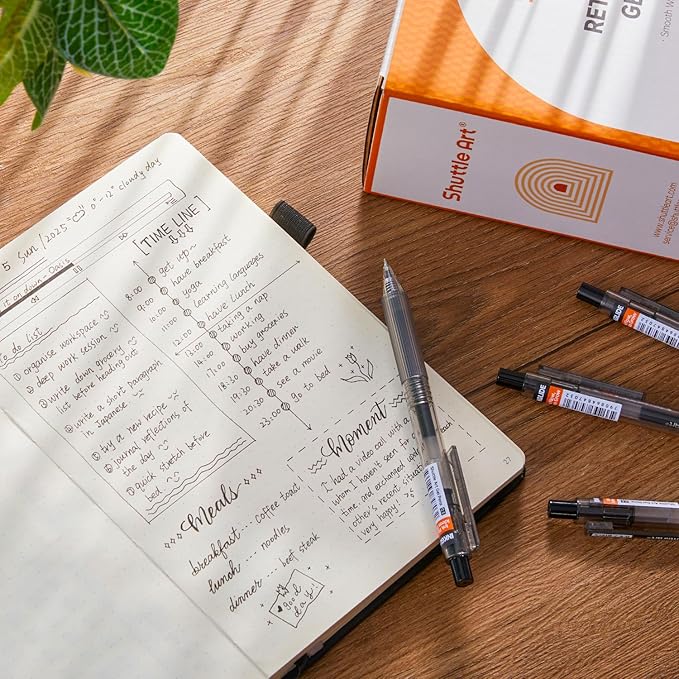 5 Sun/2025
0°-12° cloudy day
it on down - Oasis
to do List
① organise workspace
② deep work session
③ write down grocery
list before heading out
④ write a short paragraph
in Japanese
⑤ try a new recipe
⑥ journal reflections of
the day
⑦ quick stretch before
bed
[TIME LINE]
8:00 get up~
9:00 have breakfast
10:00 yoga
11:00 learning languages
12:00 have Lunch
13:00 taking a nap
working
17:00 buy groceries
18:30 have dinner
19:30 take a walk
20:30 see a movie
23:00 go to bed
Meals
breakfast --- coffee toast
lunch --- noodles
dinner --- beef steak
good
day!
Moment
I had a video call with a
whom I haven't seen for
time, and exchanged
other's recent situat
very happy!
each
27
Shuttle Art®
RET
GE
Smooth W
www.shuttleart.com
service@shuttle
GLIDE
GLIDE